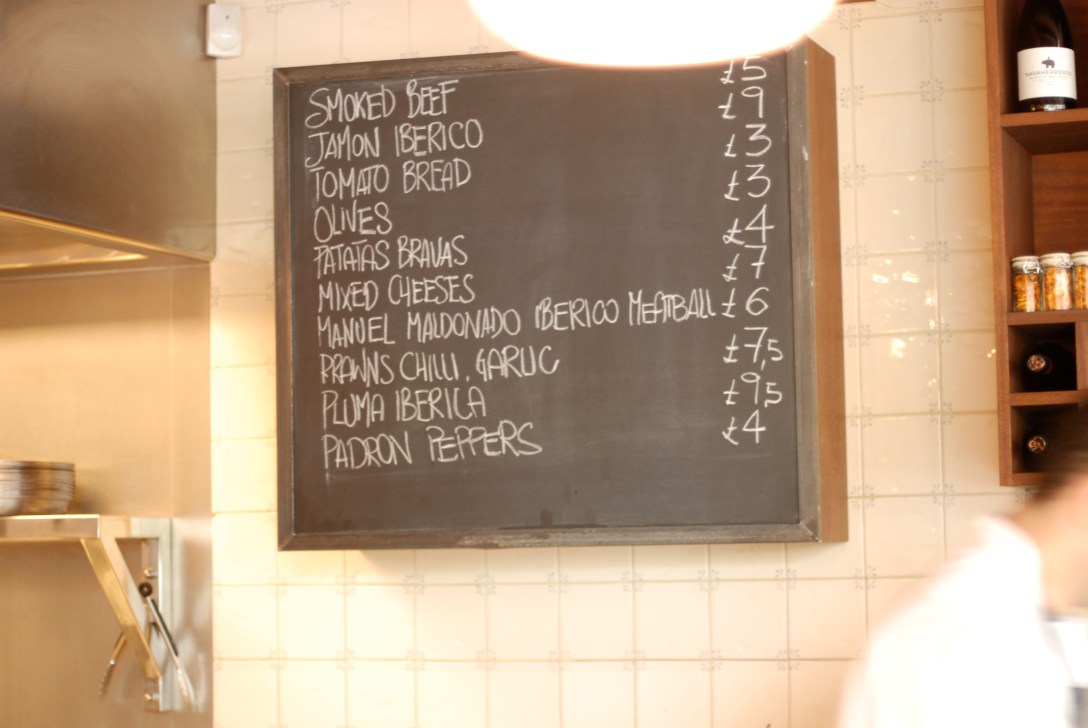 SMOKED BEEF £5
JAMON IBERICO £9
TOMATO BREAD £3
OLIVES £3
PATATAS BRAVAS £4
MIXED CHEESES £7
MANUEL MALDONADO IBERICO MEATBALL £6
PRAWNS CHILLI, GARLIC £7,5
PLUMA IBERICA £9,5
PADRON PEPPERS £4